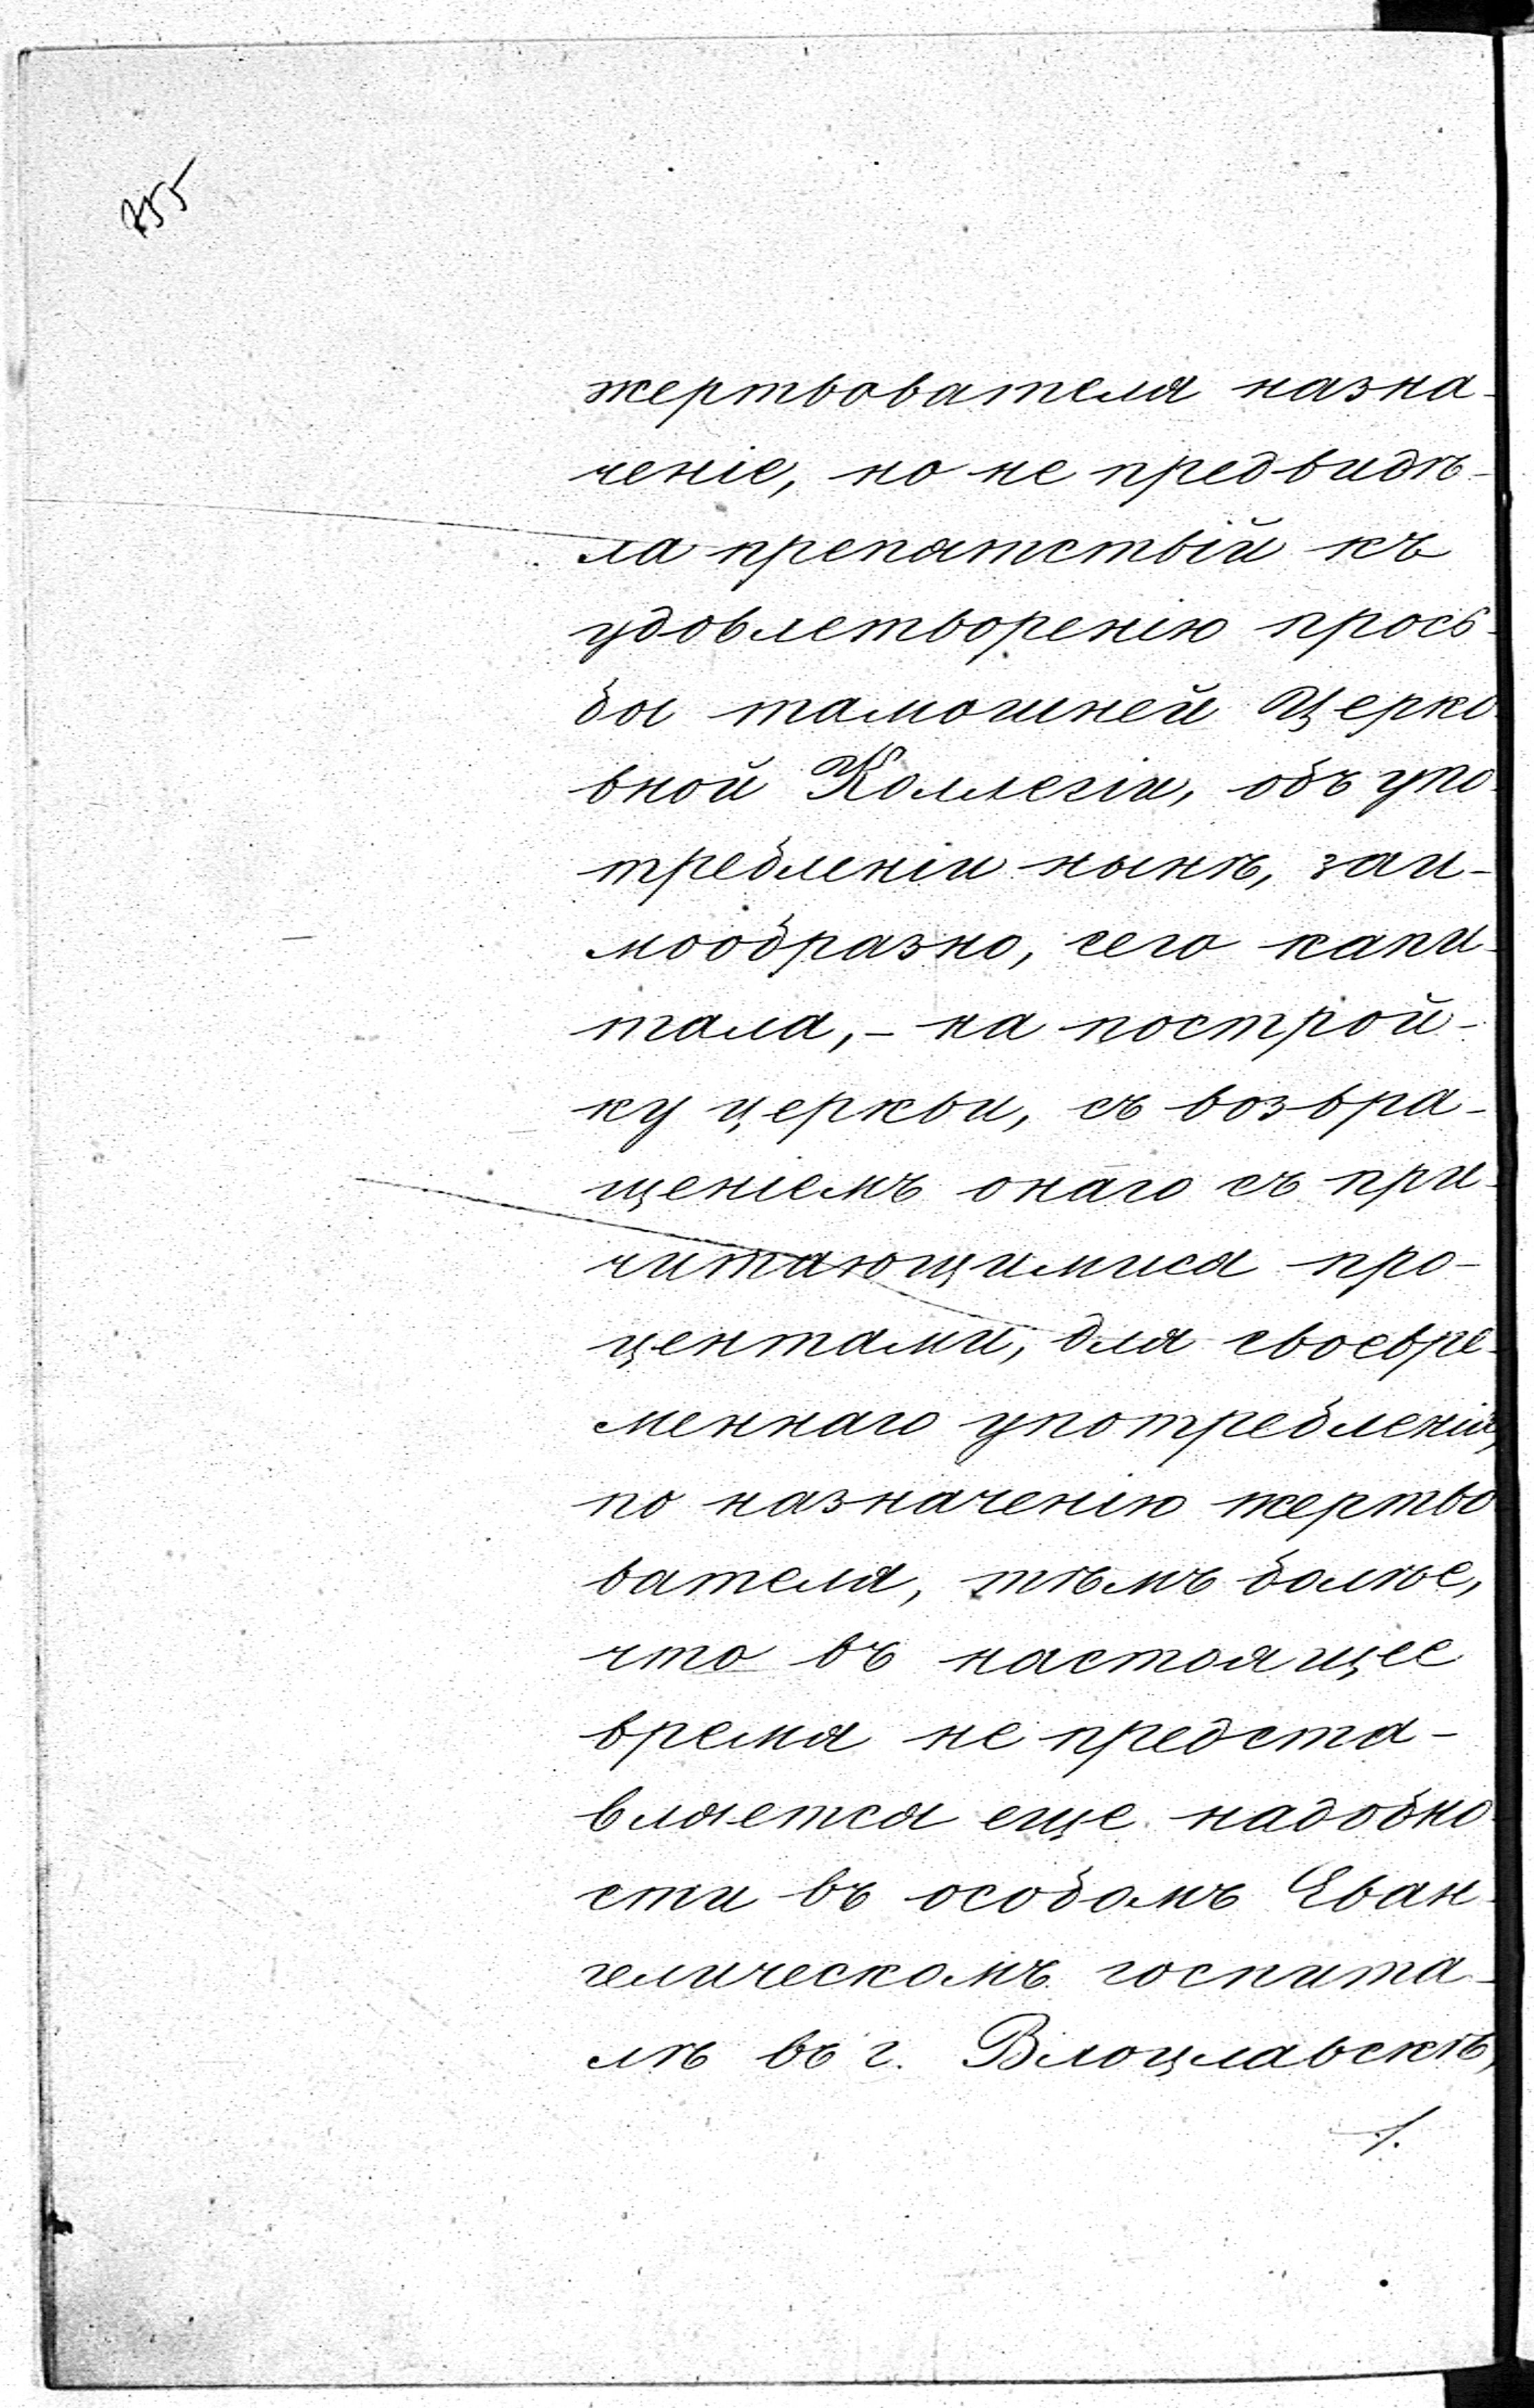 755
жертвователя назна-
ченіе, но не предвидѣ-
ла препятствій къ
удовлетворенію прось-
бы тамошней Церко-
вной Коллегіи, объ упо-
требленіи нынѣ, заи-
мообразно, сего капи-
тала,- на построй-
ку церкви, съ возвра-
щеніемъ онаго съ при-
читающимися про-
центами, для своевре-
меннаго употребленія,
по назначенію жертво
вателя, тѣмъ болѣе,
что въ настоящее
время не предста-
вляется еще надобно-
сти въ особомъ Еван-
гелическомъ госпита-
лѣ въ г. Влоцлавскѣ,